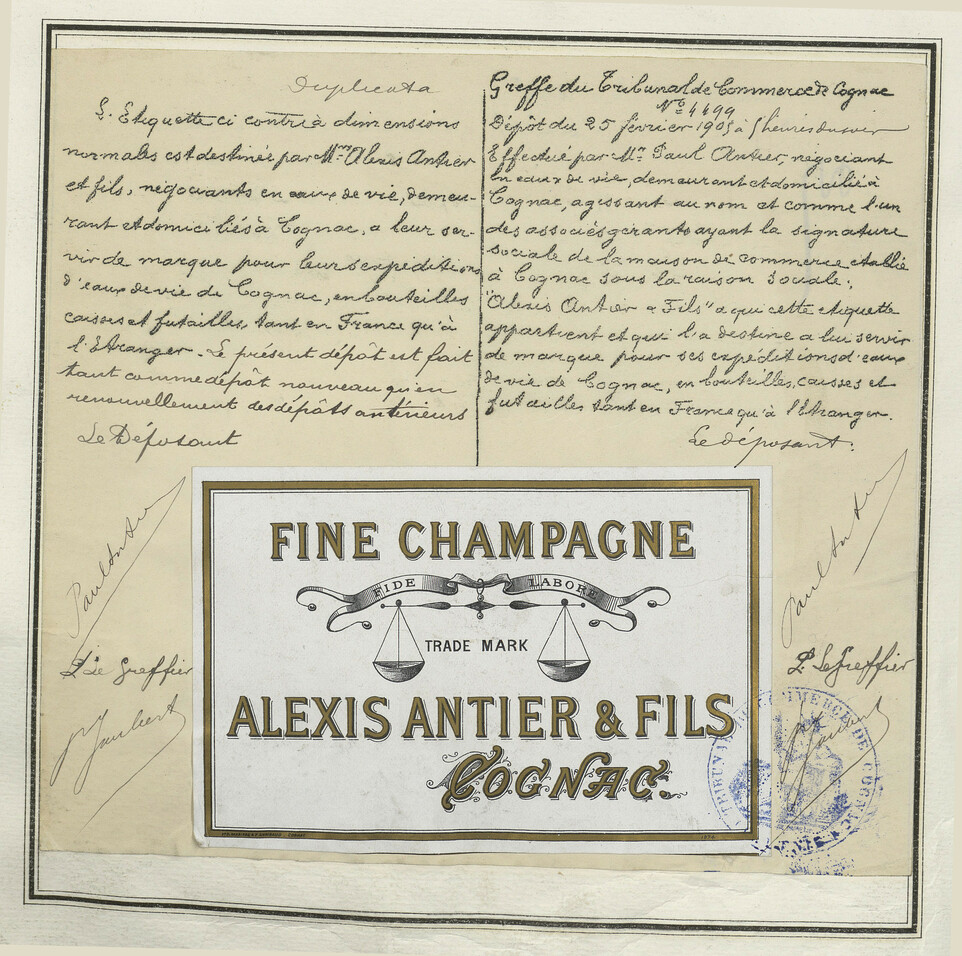 Duplicata
L'Etiquette ci contre à dimensions
normales est destinée par Mrs Alexis Antier
et fils, négociants en eaux de vie, demeu-
rant et domiciliés à Cognac, a leur ser-
vir de marque pour leurs expéditions
d'eaux de vie de Cognac, en bouteilles
caisses et futailles, tant en France qu'à
l'Etranger. Le présent dépôt est fait
tant comme dépôt nouveau qu'en
renouvellement des dépôts antérieurs
Le Déposant
Paul Antier
P. Le Greffier
Greffe du Tribunal de Commerce de Cognac
No 4499
Dépôt du 25 février 1905 à 5 heures du soir
Effectué par Mr Paul Antier, négociant
en eaux de vie, demeurant et domicilié à
Cognac, agissant au nom et comme l'un
des associés gerants ayant la signature
sociale de la maison de commerce etablie
à Cognac sous la raison sociale:
"Alexis Antier & Fils" a qui cette etiquette
appartient et qui l'a destine a lui servir
de marque pour ses expéditions d'eaux
de vie de Cognac, en bouteilles, caisses et
futailles tant en France qu'à l'Etranger.
Le déposant:
Paul Antier
P. Le Greffier
FINE CHAMPAGNE
FIDE LABORE
TRADE MARK
ALEXIS ANTIER & FILS
COGNAC.
TRIBUNAL DE COMMERCE DE COGNAC